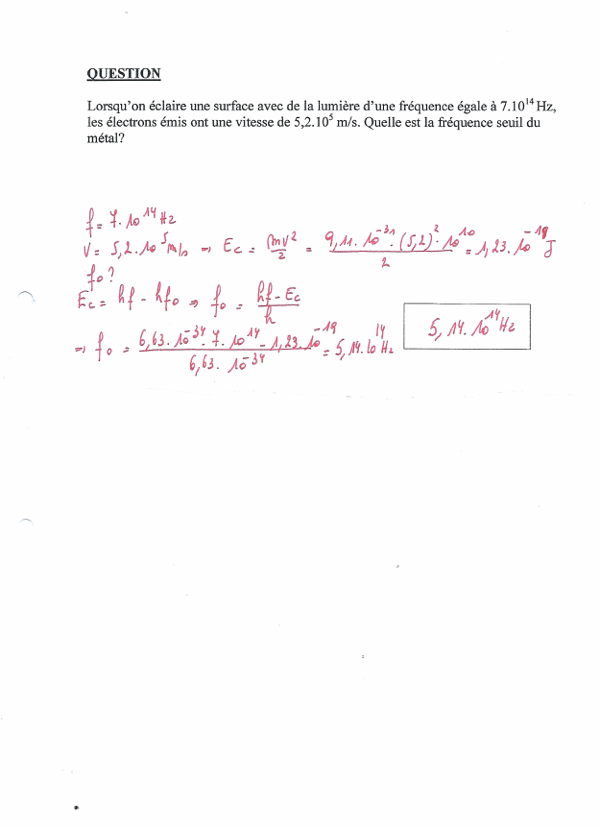 QUESTION
Lorsqu'on éclaire une surface avec de la lumière d'une fréquence égale à 7.10¹⁴ Hz,
les électrons émis ont une vitesse de 5,2.10⁵ m/s. Quelle est la fréquence seuil du
métal?
f = 7.10¹⁴ Hz
V = 5,2.10⁵ m/s ⇒ Ec = mv²/2 = 9,11.10⁻³¹.(5,2)².10¹⁰/2 = 1,23.10⁻¹⁹ J
f₀ ?
Ec = hf - hf₀ ⇒ f₀ = hf - Ec/h
⇒ f₀ = 6,63.10⁻³⁴.7.10¹⁴ - 1,23.10⁻¹⁹/6,63.10⁻³⁴ = 5,14.10¹⁴ Hz
5,14.10¹⁴ Hz